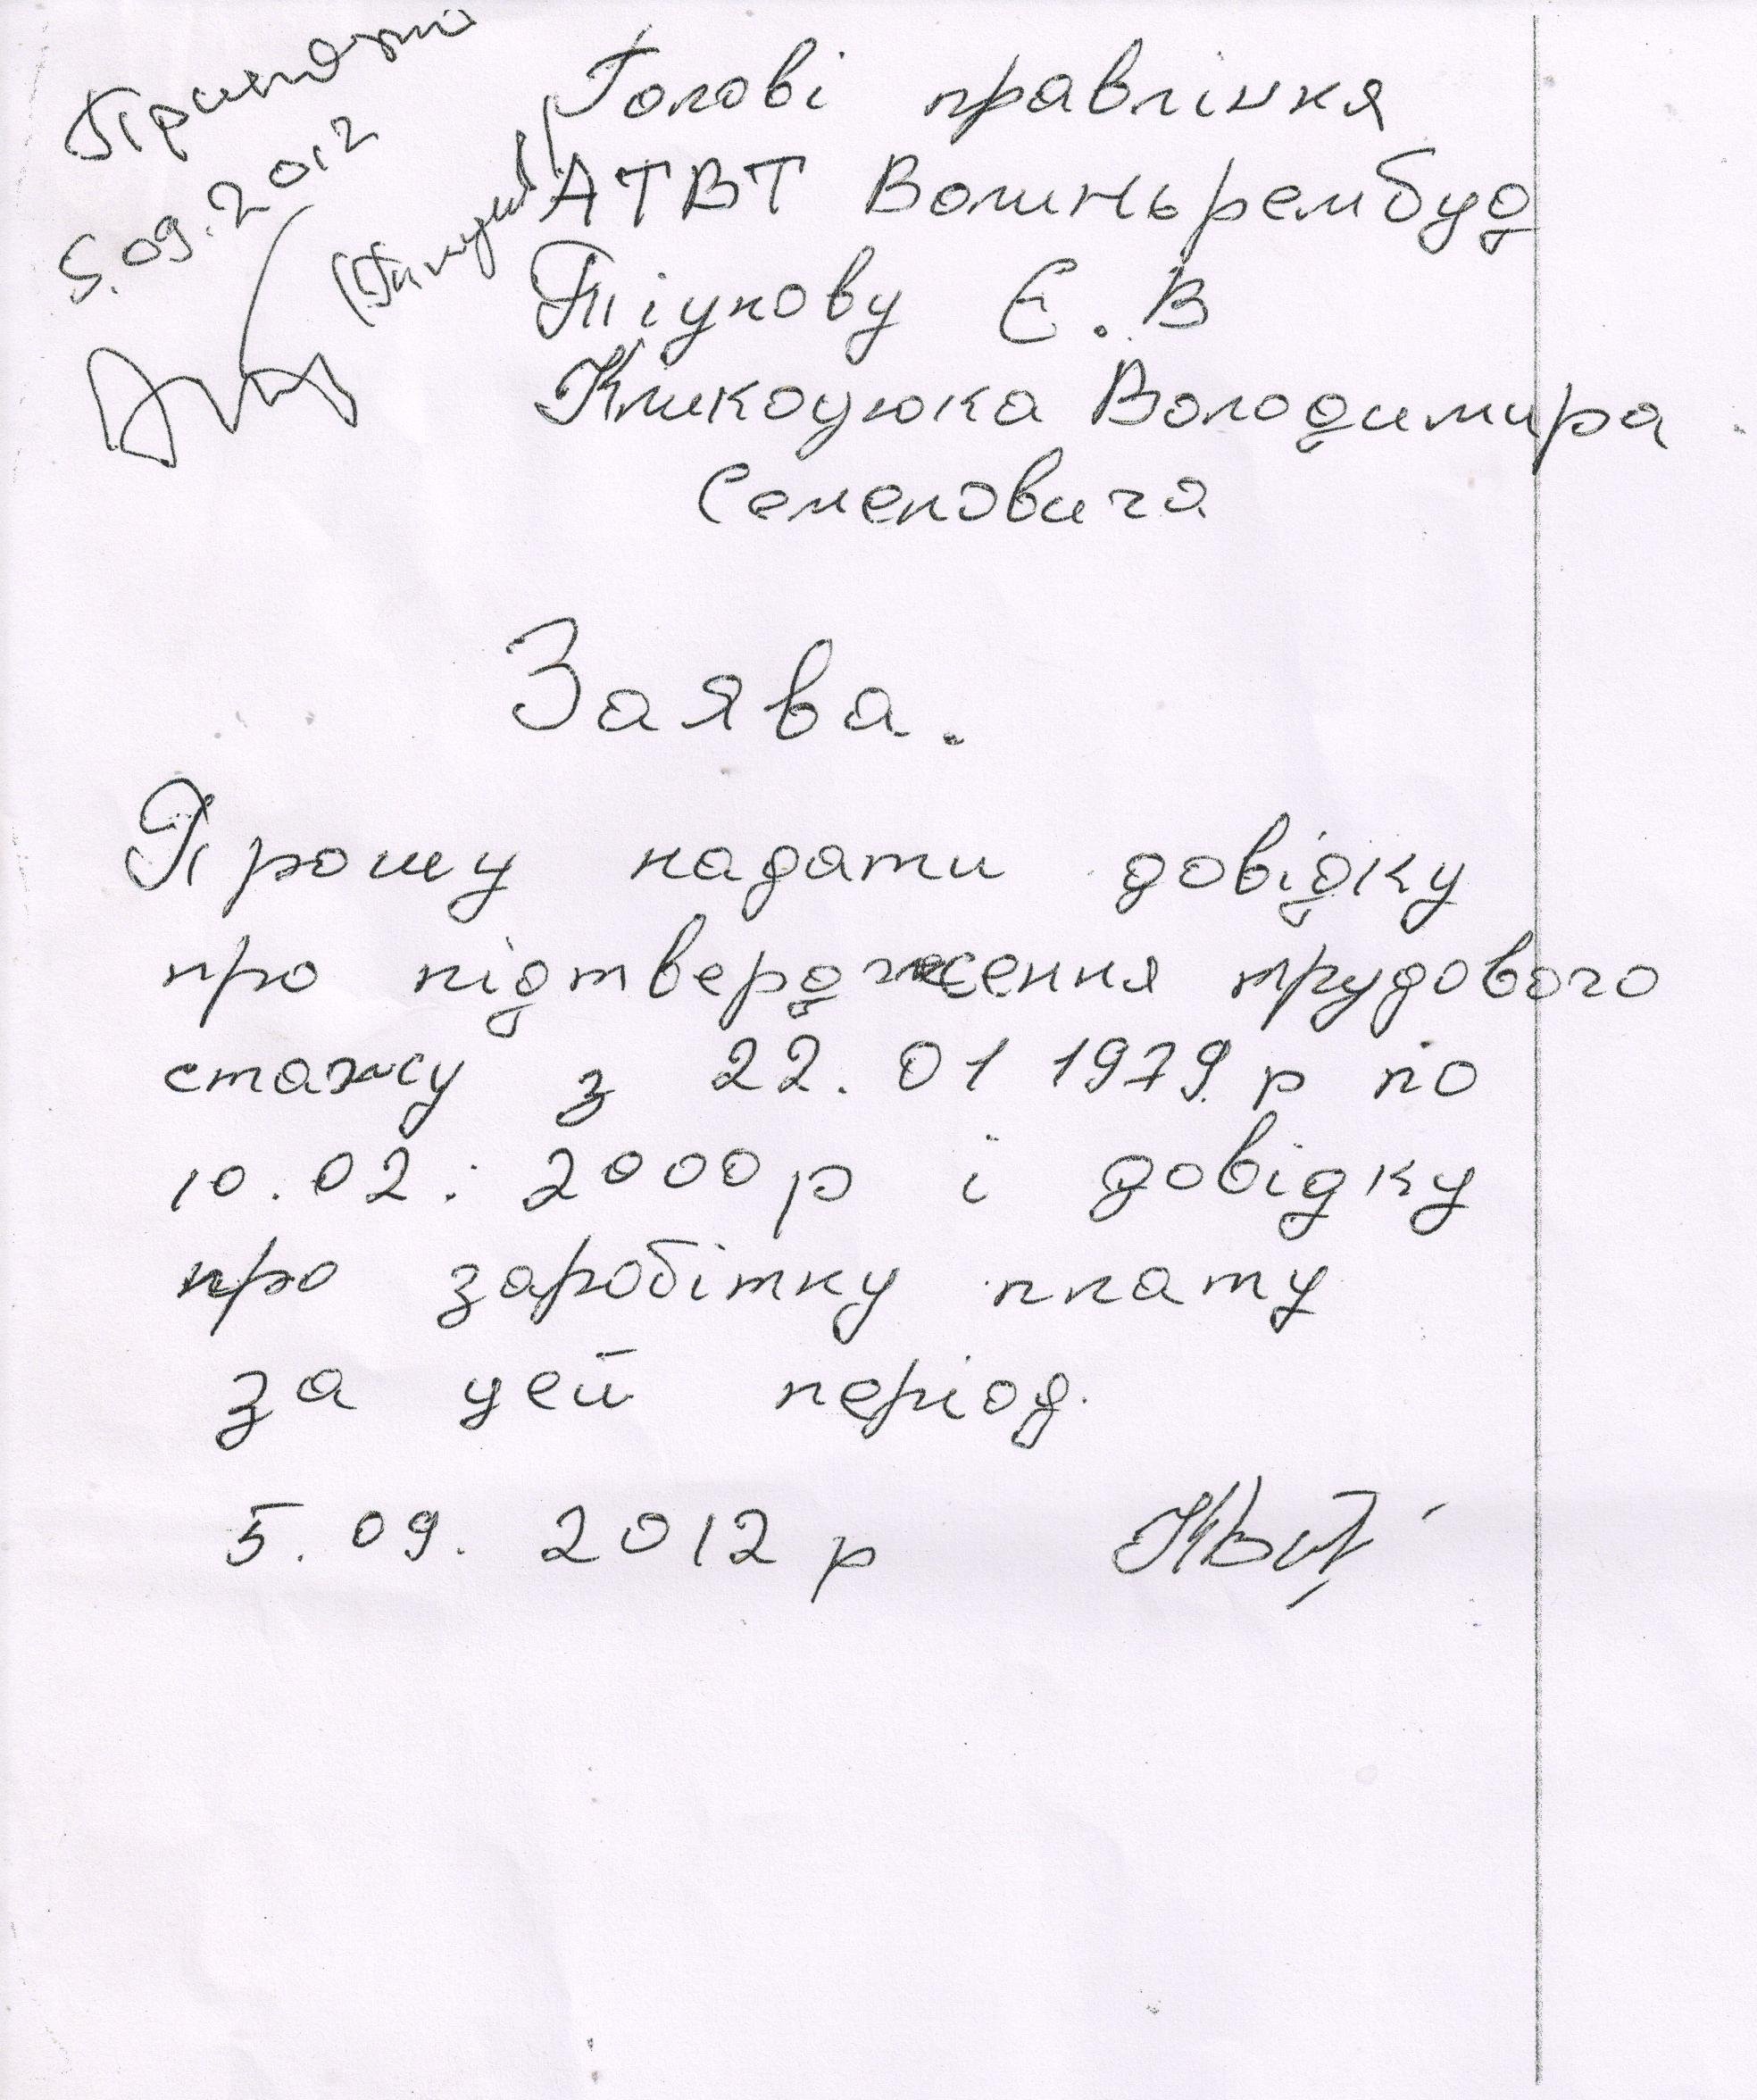 5.09.2012
Голові правлінкя
АТВТ Волиньрембуд
Тіунову Є.В
Кликоцюка Володимира
Семеновича
Заява.
Прошу надати довідку
про підтвердження трудового
стажу з 22.01 1979 р по
10.02. 2000р і довідку
про заробітну плату
за цей період.
5.09. 2012 р